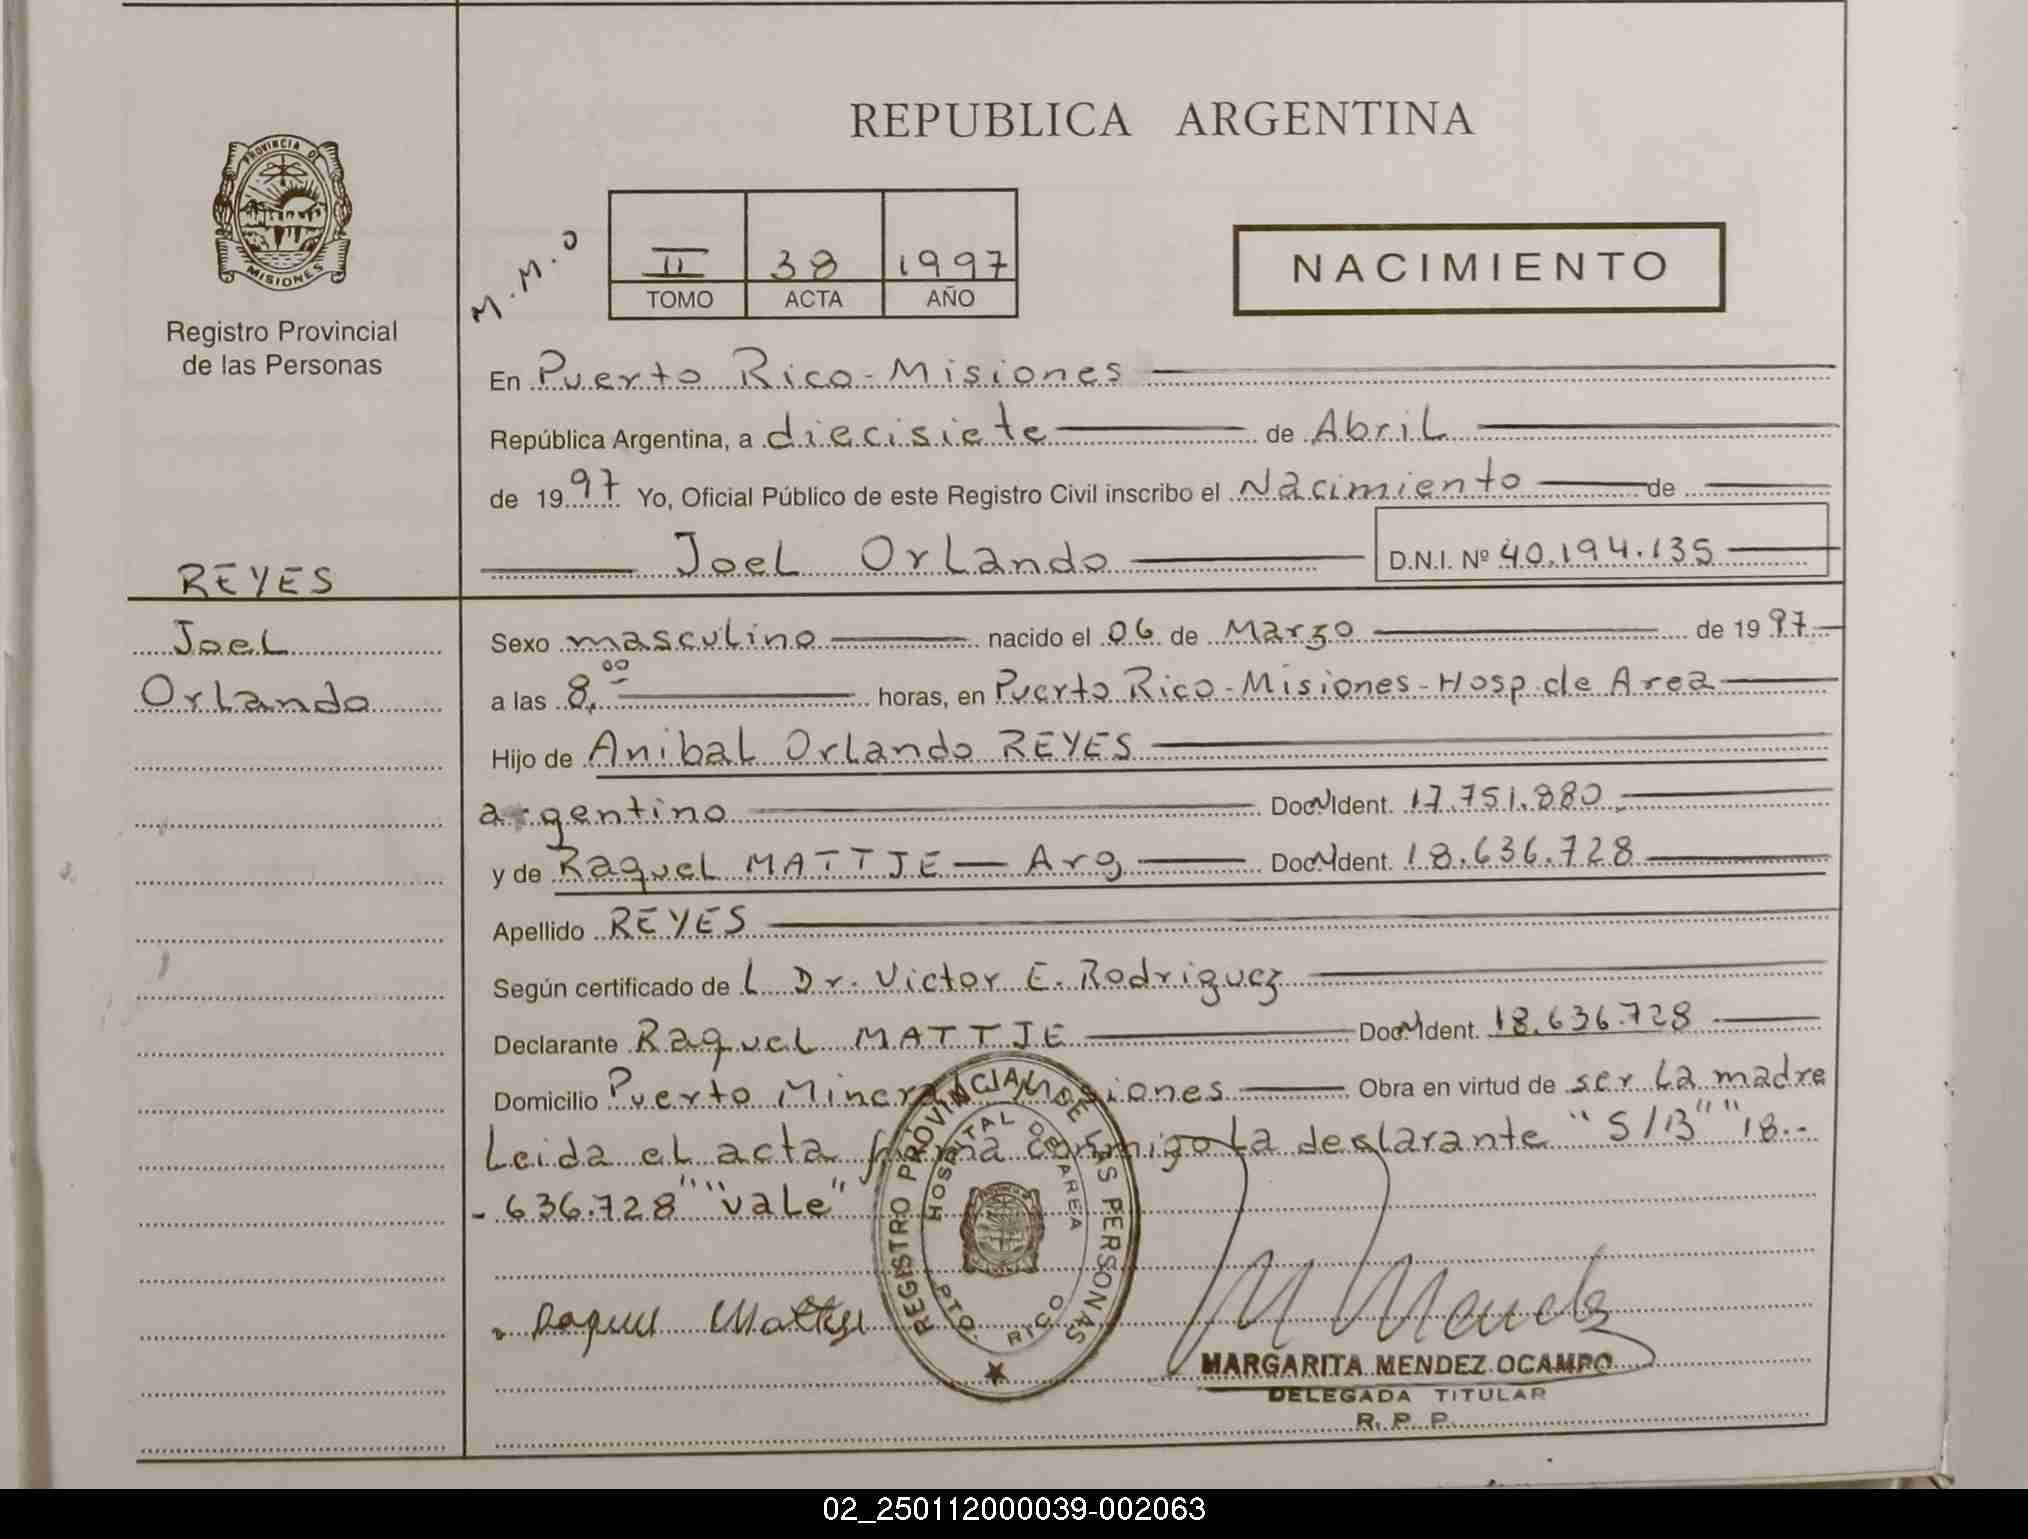 REPUBLICA ARGENTINA
PROVINCIA DE
MISIONES
Registro Provincial
de las Personas
M.M.O
II 38 1997
TOMO ACTA AÑO
NACIMIENTO
En Puerto Rico - Misiones
República Argentina, a diecisiete de Abril
de 1997 Yo, Oficial Público de este Registro Civil inscribo el Nacimiento de
Joel Orlando D.N.I. Nº 40.194.135
REYES
Joel
Orlando
Sexo masculino nacido el 06 de Marzo de 1997
a las 8,00 horas, en Puerto Rico - Misiones - Hosp. de Area
Hijo de Anibal Orlando REYES
argentino Doc. N Ident. 17.751.880
y de Raquel MATTJE — Arg Doc. N Ident. 18.636.728
Apellido REYES
Según certificado de L Dr. Victor E. Rodriguez
Declarante Raquel MATTJE Doc. N Ident. 18.636.728
Domicilio Puerto Mineral Misiones Obra en virtud de ser la madre
Leida el acta firma conmigo la declarante "S/B" "18.-
- 636.728" "vale"
REGISTRO PROVINCIAL DE LAS PERSONAS
HOSPITAL DE AREA
PTO. RICO
Raquel Mattje
M Mendez
MARGARITA MENDEZ OCAMPO
DELEGADA TITULAR
R. P. P.
02_250112000039-002063